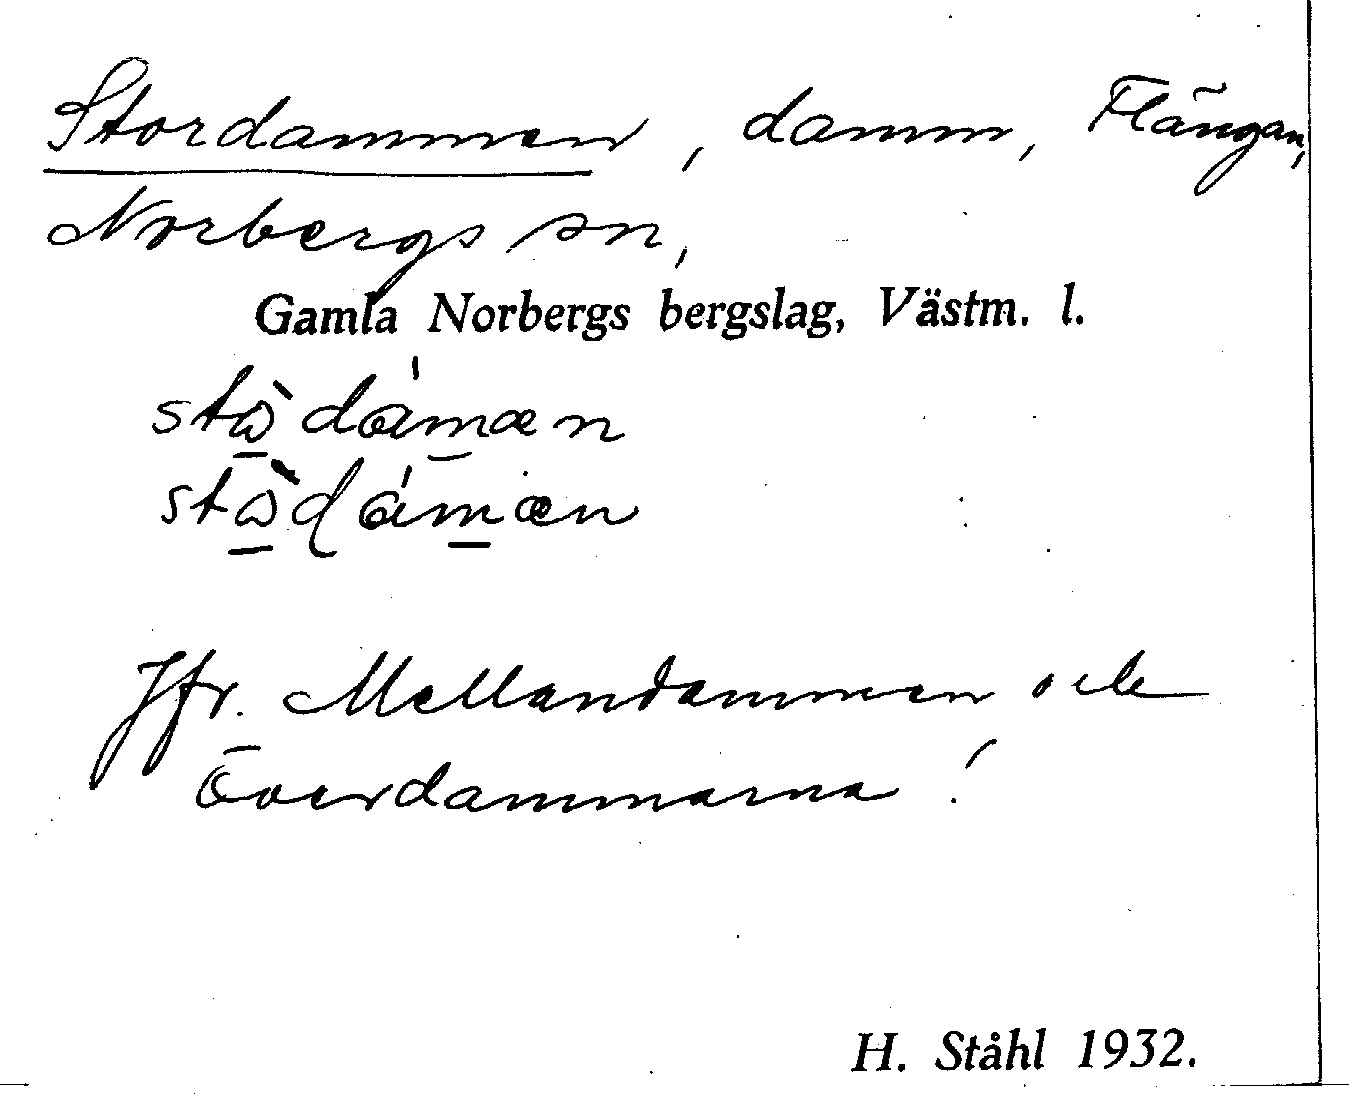 Stordammen, damm, Flängan,
Norbergs sn,
Gamla Norbergs bergslag, Västm. l.
Jfr. Mellandammen och
Överdammarna!
H. Ståhl 1932.